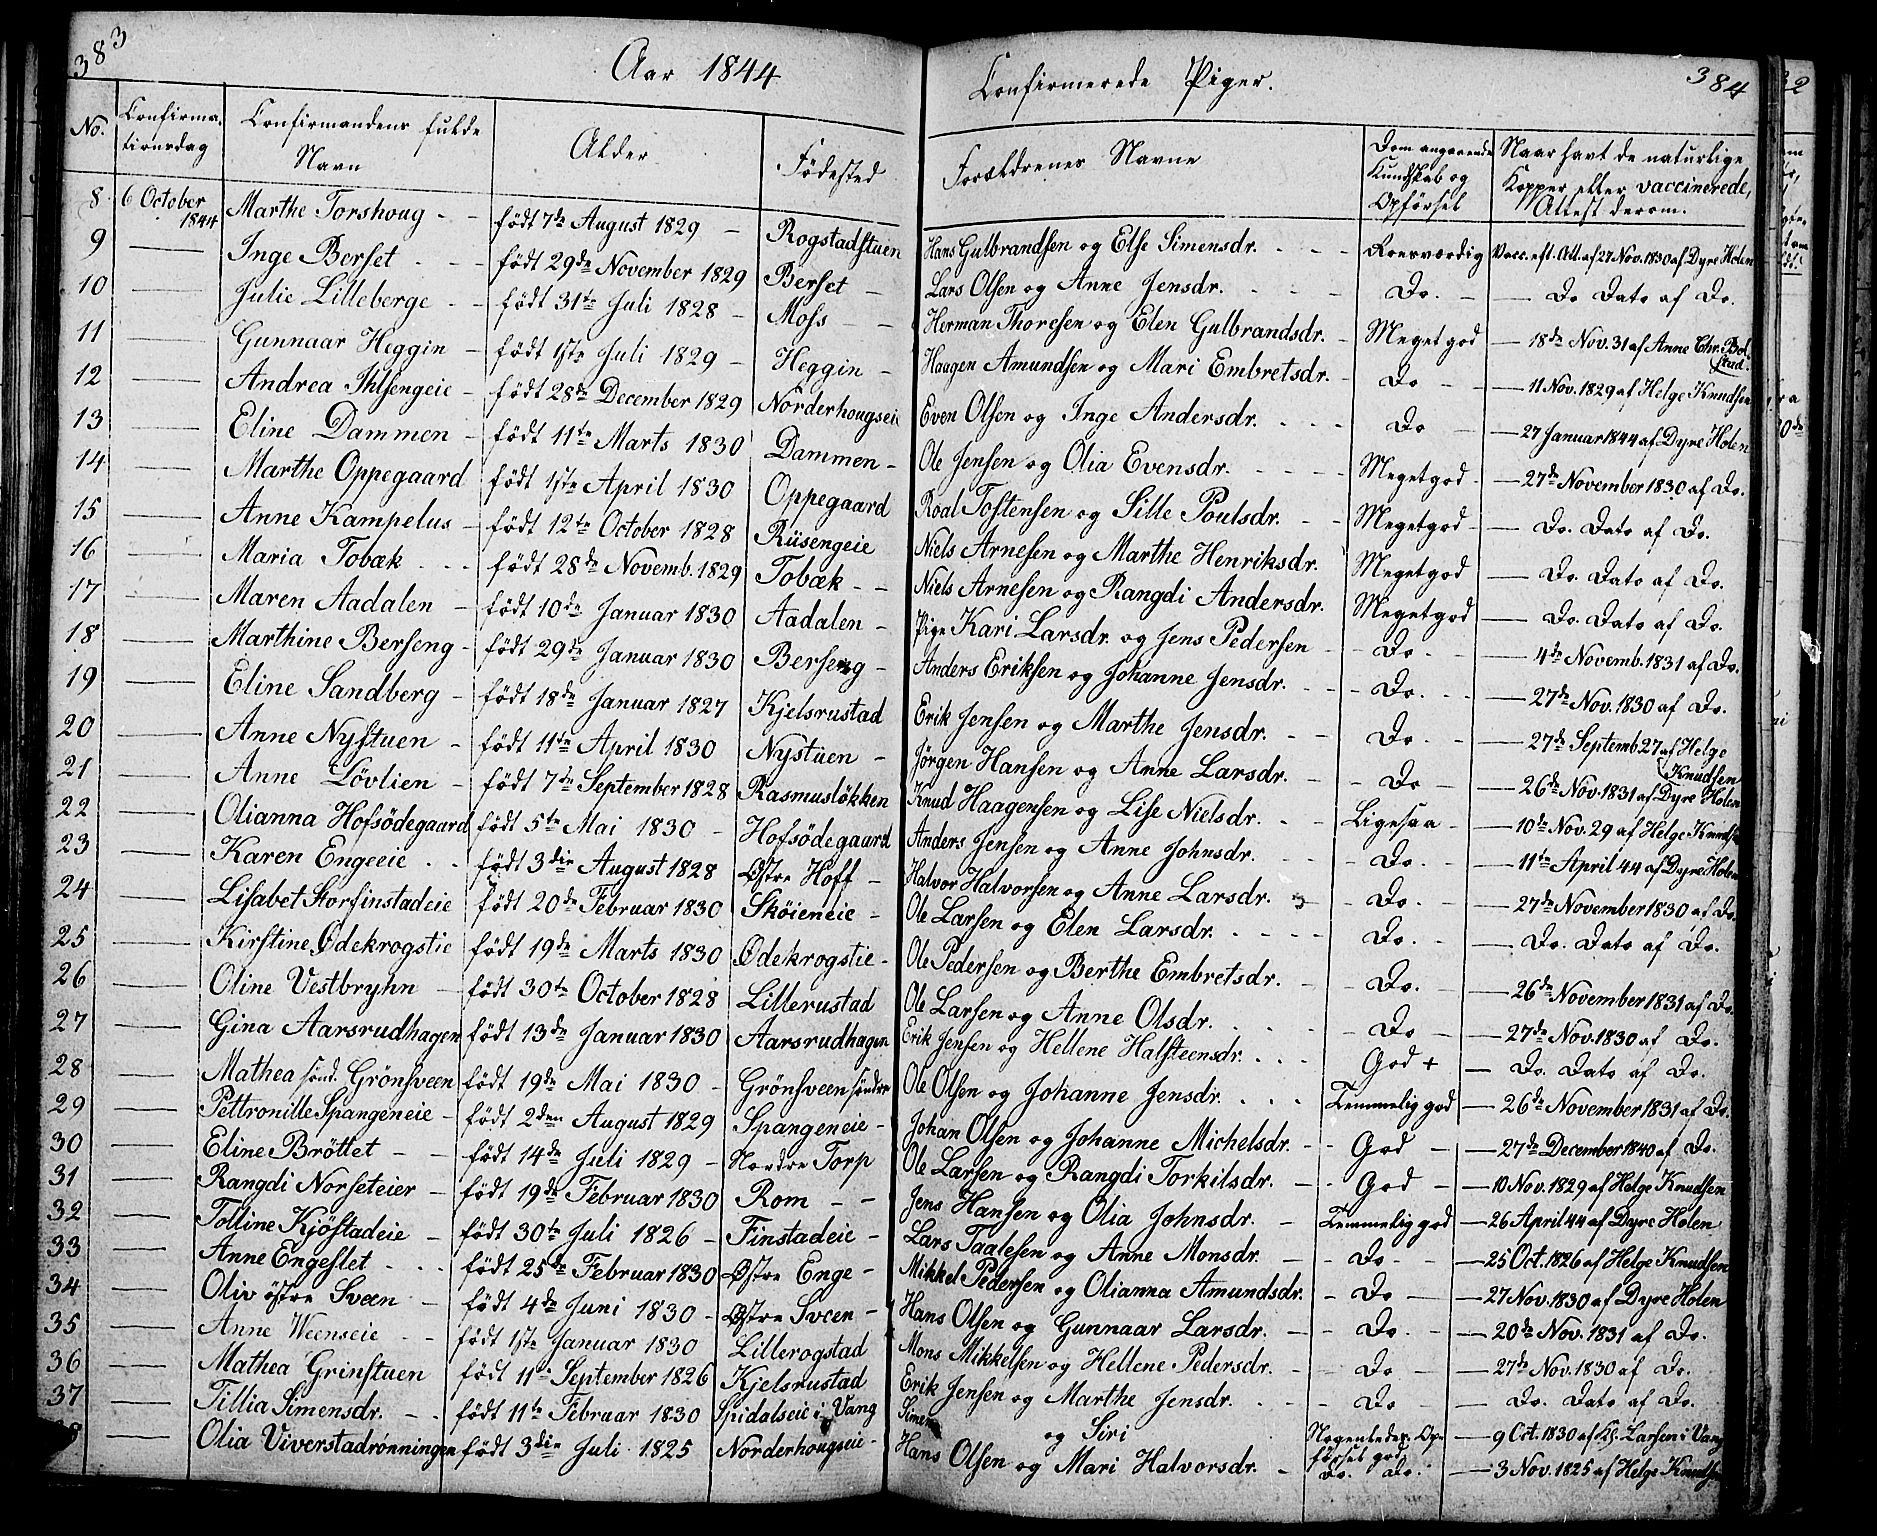 383
Aar 1844
Confirmerede Piger.
384
No. Confirmationsdag Confirmandens fulde Navn Alder Födested Forældrenes Navne Dom angaaende Kundskab og Opförsel Naar havt de naturlige Kopper eller vaccinerede, Attest derom.
8. 6 October 1844 Marthe Torshoug - - födt 7de August 1829 - Rogstadstuen Hans Gulbrandsen og Else Simensdr. - - - Roesværdig Vacc. eft. Att. af 27 Nov. 1830 af Dyre Holen
9 — Inge Berset - - födt 29de November 1829 Berset - Lars Olsen og Anne Jensdr. - - - Do. - — Do Dato af Do.
10 — Julie Lilleberge - - födt 31te Juli 1828 - Moss - - Herman Thoresen og Elen Gulbrandsdr. - Meget god — 18de Nov. 31 af Anne Chr. Bolstad.
11 — Gunnaar Heggin - födt 1ste Juli 1829 - Heggin - Haagen Amundsen og Mari Embretsdr. - Do - - — 11 Nov. 1829 af Helge Knudsen
12 — Andrea Ihlsengeie - födt 28de December 1829 Norderhougseie Even Olsen og Inge Andersdr. - - - Do - — 27 Januar 1844 af Dyre Holen
13 — Eline Dammen - födt 11te Marts 1830 Dammen - Ole Jensen og Olia Evensdr. - - - - Meget god - — 27de November 1830 af Do.
14 — Marthe Oppegaard födt 1ste April 1830 Oppegaard Roal Tostensen og Sille Poulsdr. - - Meget god - — Do. Dato af Do.
15 — Anne Kampelus - födt 12te October 1828 Riisengeie Niels Arnesen og Marthe Henriksdr. Meget god — Do. Dato af Do.
16 — Maria Tobæk - - - födt 28de Novemb. 1829 Tobæk - - Niels Arnesen og Rangdi Andersdr. Meget god — Do. Dato af Do.
17 — Maren Aadalen - födt 10de Januar 1830 Aadalen - Pige Kari Larsdr. og Jens Pedersen - Do. - — 4de Novemb. 1831 af Do.
18 — Marthine Berseng - födt 29de Januar 1830 Berseng - Anders Eriksen og Johanne Jensdr. - - - Do. - - — 27de Nov. 1830 af Do.
19 — Eline Sandberg - födt 18de Januar 1827 Kjelsrustad Erik Jensen og Marthe Jensdr. - - Do. - — 27de Septemb. 27 af Helge Knudsen
20 — Anne Nystuen - födt 11te April 1830 Nystuen - Jørgen Hansen og Anne Larsdr. - - Do - — 26de Nov. 1831 af Dyre Holen
21 — Anne Lövlien - födt 7de September 1828 Rasmuslökken Knud Haagensen og Lise Nielsdr. - - Ligesaa - — 10de Nov. 29 af Helge Knudsen
22 — Olianna Hofsödegaard födt 5te Mai 1830 - Hofsödegaard Anders Jensen og Anne Johnsdr. - - - Do. - — 11te April 44 af Dyre Holen
23 — Karen Engeeie - - födt 3die August 1828 Østre Hoff - Halvor Halvorsen og Anne Larsdr. - Do. - — 27de November 1830 af Do.
24 — Lisabet Storfinstadeie födt 20de Februar 1830 Sköieneie - Ole Larsen og Elen Larsdr. - - - - Do. - — Do. Dato af Do.
25 — Kirstine Ødekrogstie födt 19de Marts 1830 Ødekrogstie - Ole Pedersen og Berthe Embretsdr. - - Do. - — 26de November 1831 af Do.
26 — Oline Vestbryhn - födt 30te October 1828 Lillerustad Ole Larsen og Anne Olsdr. - - - - Do - — 27de Nov. 1830 af Do.
27 — Gina Aarsrudhagen födt 13de Januar 1830 Aarsrudhagen Erik Jensen og Hellene Halsteensdr. - - - God + — Do. Dato af Do.
28 — Mathea sönd. Grönsveen födt 19de Mai 1830 - Grönsveen söndre Ole Olsen og Johanne Jensdr. - - - Temmelig god — 26de November 1831 af Do.
29 — Pettronille Spangeneie - födt 2den August 1829 Spangeneie - Johan Olsen og Johanne Michelsdr. - - God - — 27de December 1840 af Do.
30 — Eline Bröttet - - födt 14de Juli 1829 - Nordre Torp Ole Larsen og Rangdi Torkilsdr. - - God - — 10 Nov. 1829 af Helge Knudsen
31 — Rangdi Norseteier - födt 19de Februar 1830 Rom - - Jens Hansen og Olia Johnsdr. - Temmelig god — 26 April 44 af Dyre Holen
32 — Tolline Kjöstadeie - födt 30te Juli 1826 - Finstadeie - Lars Taalesen og Anne Monsdr. - - Do - - — 25 Oct. 1826 af Helge Knudsen
33 — Anne Engeslet - - - födt 25de Februar 1830 Østre Enge - Mikkel Pedersen og Olianna Amundsdr. - Do - — 27 Nov. 1830 af Dyre Holen
34 — Oliv østre Sveen - födt 4de Juni 1830 - Østre Sveen - Hans Olsen og Gunnaar Larsdr. - - Do. - — 20de Nov. 1831 af Do.
35 — Anne Weenseie - - födt 1ste Januar 1830 Lillerogstad Mons Mikkelsen og Hellene Pedersdr. - Do - — 27de Nov. 1830 af Do.
36 — Mathea Grinstuen födt 11te September 1826 Kjelsrustad Erik Jensen og Marthe Jensdr. - - - Do - — Do. Dato af Do.
37 — Tillia Simensdr. - - födt 11te Februar 1830 Spidalseie i Vang Simen og Siri Nogenledes. Opförsel god — 9 Oct. 1830 af Larsen i Vang
— Olia Viverstadrønningen födt 3die Juli 1825 Norderhougseie - Hans Olsen og Mari Halvorsdr. - Do. Do. — 3 Nov. 1825 af Helge Knudsen